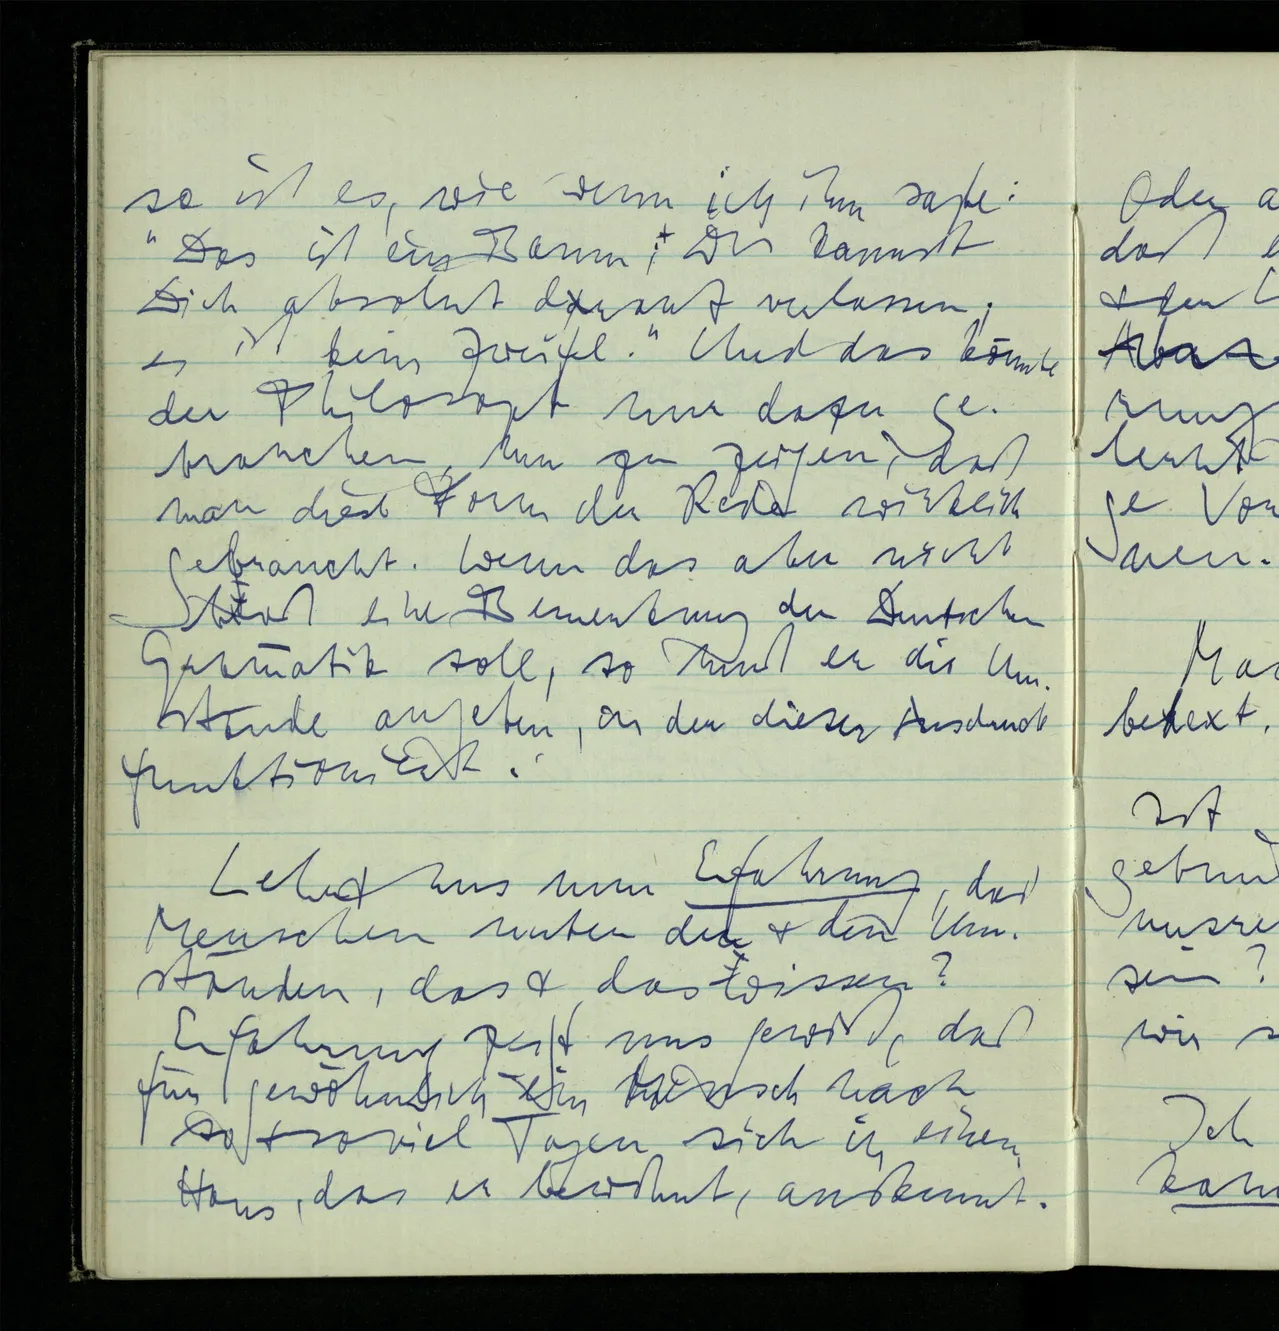 so ist es, wie wenn ich ihm sagte:
"Das ist ein Baum; Du kannst
Dich absolut darauf verlassen;
es ist kein Zweifel." Und das könnte
der Philosoph nur dazu ge-
brauchen, um zu zeigen, daß
man diese Form der Rede wirklich
gebraucht. Wenn das aber nicht
bloß eine Bemerkung der Deutschen
Gramatik sein soll, so muß er die Um-
stände angeben, in der dieser Ausdruck
funktioniert.
Lehrt uns nun Erfahrung, daß
Menschen unter den & den Um-
ständen, das & das wissen?
Erfahrung zeigt uns gewiß, daß
für gewöhnlich ein Mensch nach
so & so viel Tagen sich in einem
Haus, das er bewohnt, auskennt.
Oder
daß
& den
rung
lehrt
ge
nen.
Ma
behext.
Ist
gebun
unsre
sein?
wir
Ich
kann